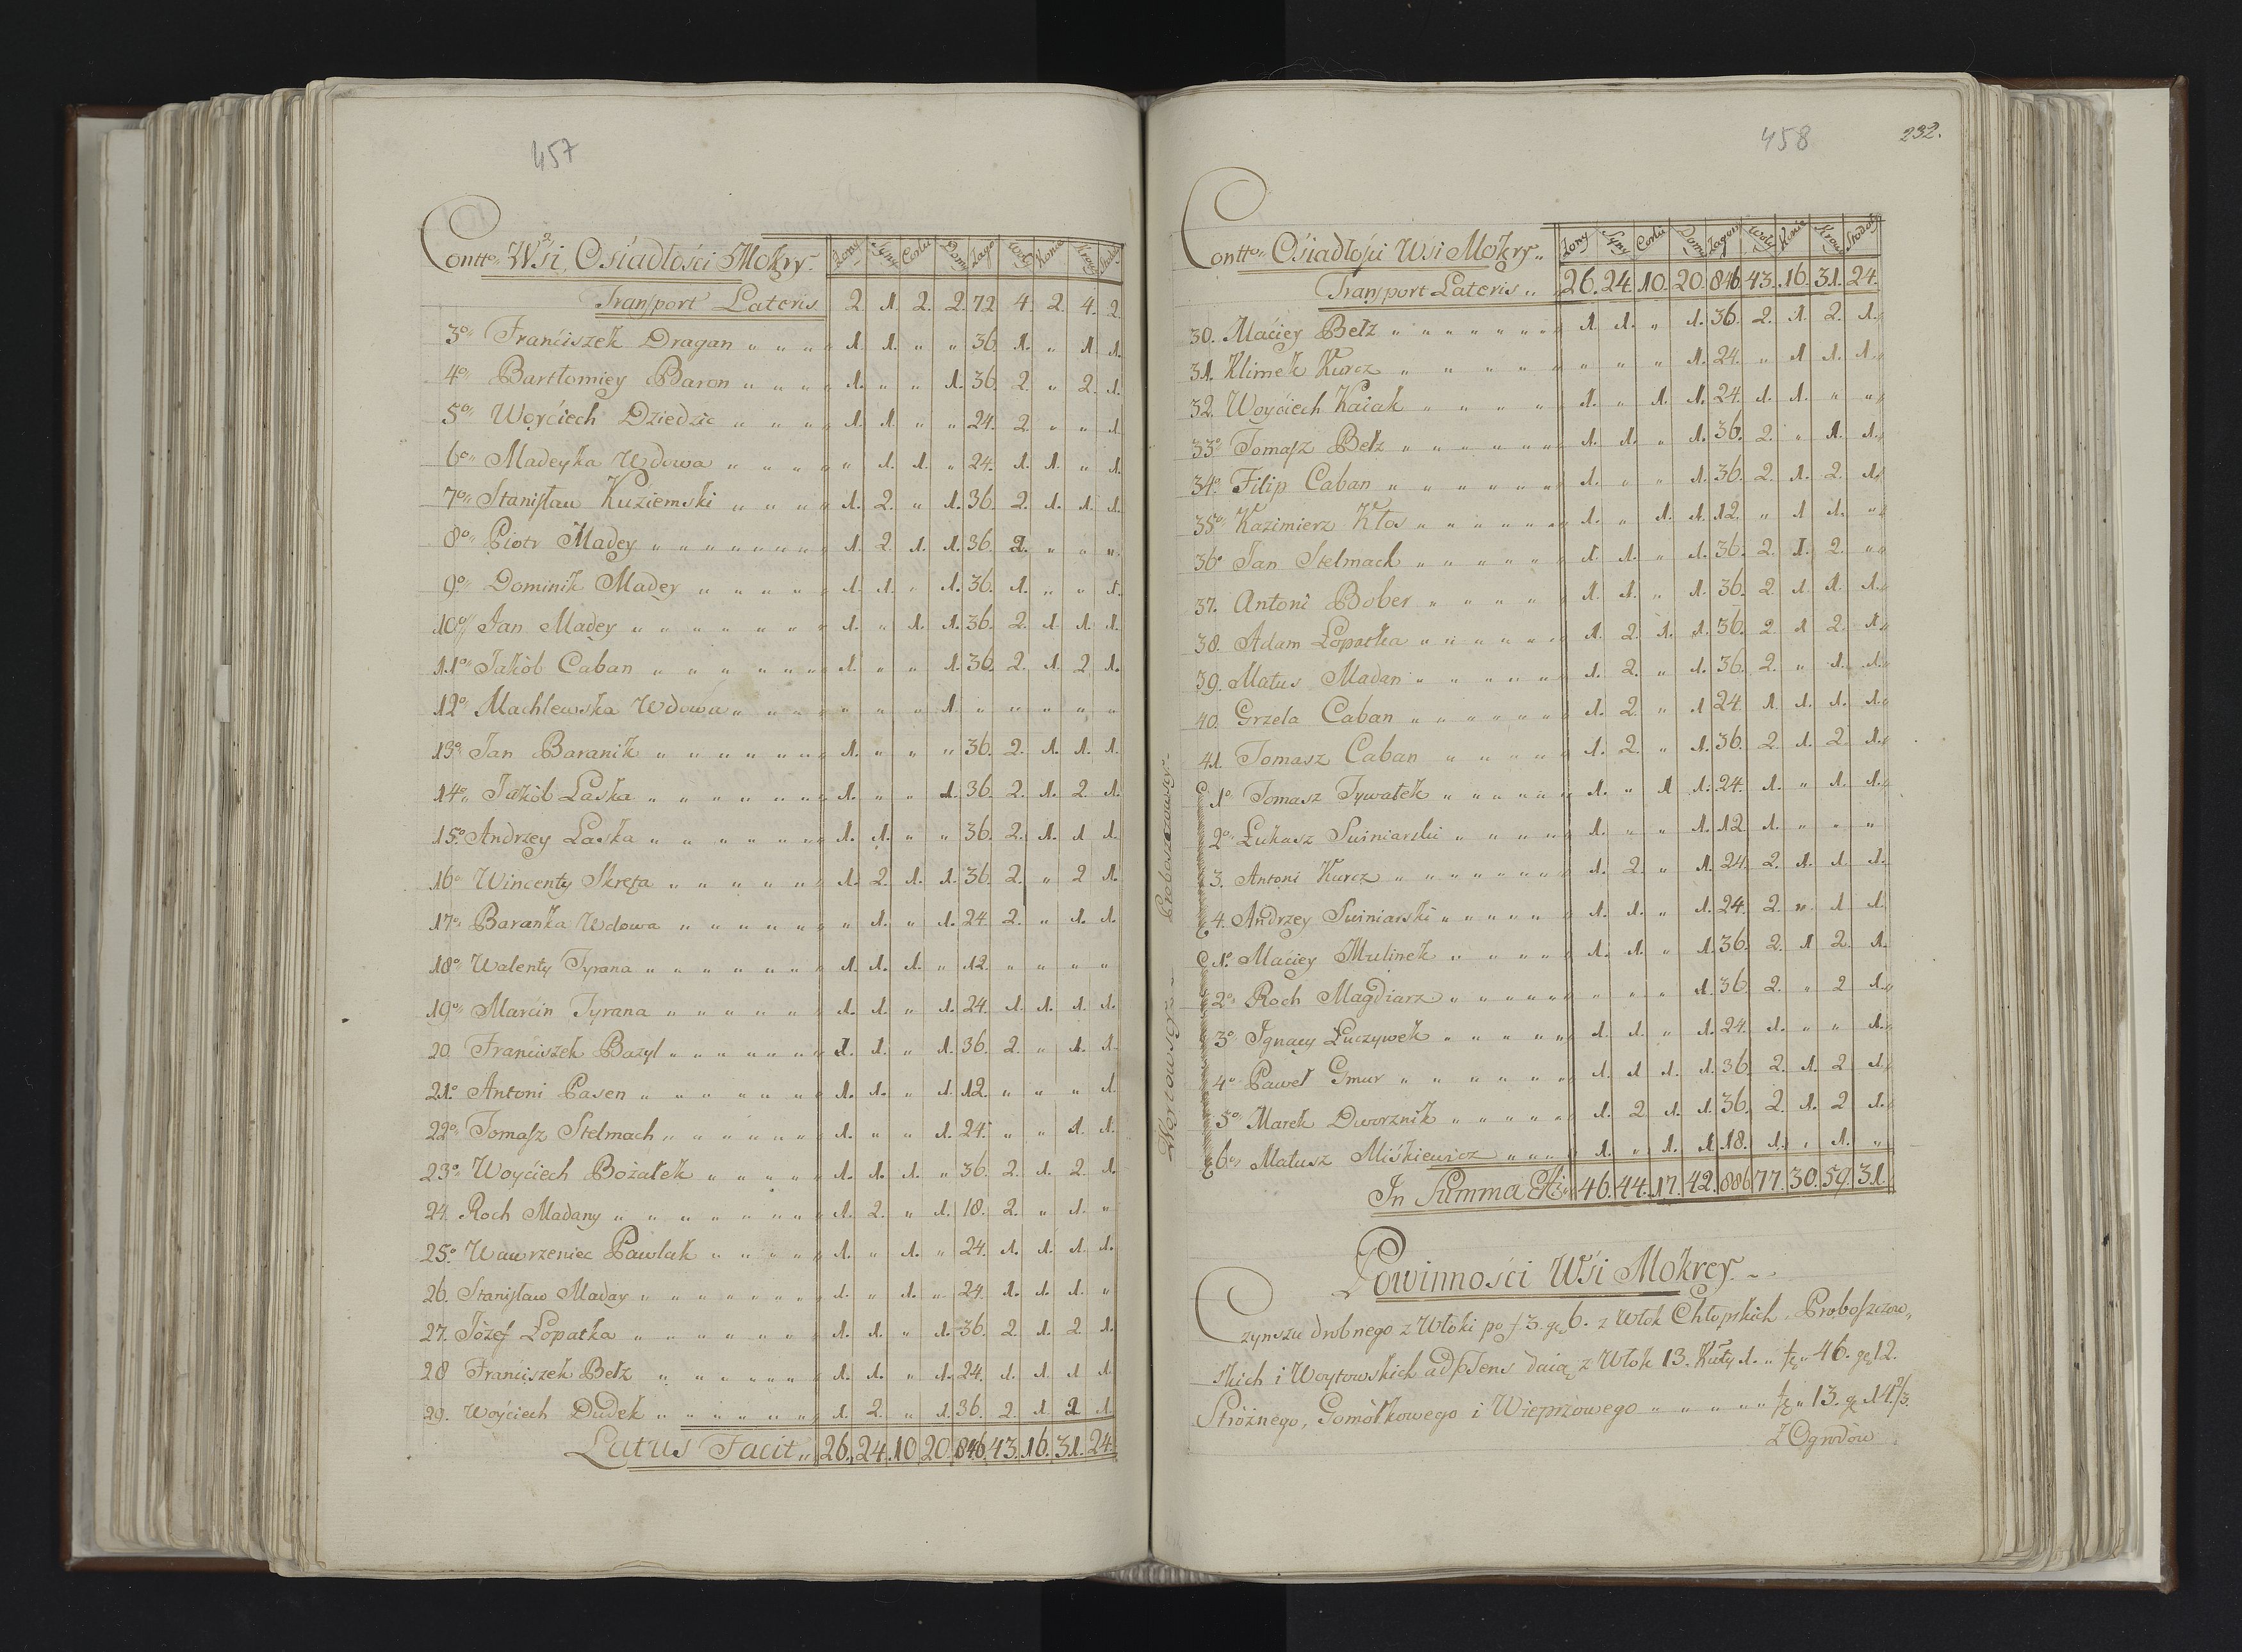 457
Contto Wsi Osiadłości Mokry. Zony Syny Corki Domy Zago Woły Konie Krowy Stodoły
Transport Lateris 2. 1. 2. 2. 72 4. 2. 4. 2.
3o Franciszek Dragan 1. 1. " " 36. 1. " 1. 1.
4o Bartłomiey Baron 1. " " 1. 36. 2. " 2. 1.
5o Woyciech Dziedzic 1. 1. " " 24. 2. " " 1.
6o Madeyka Wdowa " 1. 1. " 24. 1. 1. " 1.
7o Stanisław Kuziemski 1. 2. " 1. 36. 2. 1. 1. 1.
8o Piotr Madey 1. 2. 1. 1. 36. 2. " " "
9o Dominik Madey 1. 1. " 1. 36. 1. " " 1.
10o Jan Madey 1. " 1. 1. 36. 2. 1. 1. 1.
11o Jakób Caban 1. " " 1. 36. 2. 1. 2. 1.
12o Machlewska Wdowa " " " 1. " " " " "
13o Jan Baranik 1. " " " 36. 2. 1. 1. 1.
14o Jakób Laska 1. " " 1. 36. 2. 1. 2. 1.
15o Andrzey Laska 1. 1. " " 36. 2. 1. 1. 1.
16o Wincenty Skręta 1. 2. 1. 1. 36. 2. " 2 1.
17o Baranka Wdowa " 1. " 1. 24. 2. " 1. 1.
18o Walenty Tyrana 1. 1. 1. " 12. " " " "
19o Marcin Tyrana 1. 1. " 1. 24. 1. 1. 1. 1.
20. Franciszek Bazyl 1. 1. " 1. 36. 2. " 1. 1.
21o Antoni Pasen 1. 1. " 1. 12. " " " 1.
22o Tomasz Stelmach 1. " " 1. 24. " " 1. 1.
23o Woyciech Bożałek 1. 1. 1. " 36. 2. 1. 2. 1.
24. Roch Madany 1. 2. " 1. 18. 2. " 1. "
25o Wawrzeniec Pawlak 1. " 1. " 24. 1. 1. 1. 1.
26. Stanisław Maday 1. " 1. " 24. 1. 1. 1. "
27. Józef Łopatka 1. 1. " 1. 36. 2. 1. 2. 1.
28 Franciszek Bełz 1. 1. " 1. 24. 1. 1. 1. 1.
29. Woyciech Dudek 1. 2. " 1. 36. 2. 1. 2 1.
Latus Facit 26. 24. 10 20. 846. 43. 16. 31. 24.
458 232.
Contto Osiadłości Wsi Mokry Zony Syny Corki Domy Zagony Woły Konie Krowy Stodoły
Transport Lateris 26. 24. 10. 20. 846. 43. 16. 31. 24.
30. Maciey Bełz 1. 1. " 1. 36. 2. 1. 2. 1.
31. Klimek Kurcz " " " 1. 24. " 1 1. 1.
32. Woyciech Kaiak 1. " 1. 1. 24. 1. 1. " "
33o Tomasz Bełz 1. 1. " 1. 36. 2. " 1. 1.
34o Filip Caban 1. " " 1. 36. 2. 1. 2. 1.
35o Kazimierz Kłos 1. " 1. 1. 12. " 1 1. "
36o Jan Stelmach 1. 1. " 1. 36. 2. 1. 2. "
37. Antoni Bober 1. 1. " 1. 36. 2. 1. 1. 1.
38. Adam Łopatka 1. 2. 1. 1. 36. 2. 1 2. 1.
39. Matus Madan 1. 2. " 1. 36. 2. " 1. 1.
40. Grzela Caban 1. 2. " 1 24. 1. 1. 1. 1.
41. Tomasz Caban 1. 2. " 1. 36. 2. 1. 2. 1.
Proboszczowscy
1o Tomasz Tywałek 1. " 1 1. 24. 1. " 1. 1.
2o Łukasz Suiniarski 1. " " 1. 12. 1. " " "
3. Antoni Kurcz 1. 2. " 1. 24. 2. 1. 1. 1.
4. Andrzey Suiniarski 1. 1. " 1. 24. 2. " 1. 1.
1o Maciey Mulinek 1. 1. " 1. 36. 2. 1 2. 1.
2o Roch Magdiarz " " " 1. 36. 2. " 2 1.
3o Ignacy Łuczywek 1. 1. " 1. 24. 1. " " 1.
4o Paweł Gmur 1. 1 1. 1. 36. 2. 1. 2 1.
5o Marek Dworznik 1. 2 1. 1. 36. 2. 1. 2 1.
6o Matusz Miśkiewicz 1. " 1. 1. 18. 1. " 1. "
In Summa 46. 44. 17. 42. 886 77. 30. 59. 31.
Powinności Wsi Mokrey
Czynszu drobnego z Włoki po f 3. g 6. z Włok Chłopskich, Proboszczow,
skich i Woytowskich adpsens daią z Włok 13. 1. 46. g 12.
Stróżnego, Gomółkowego i Wieprzowego 13. g 14 2/3.
Z Ogrodów